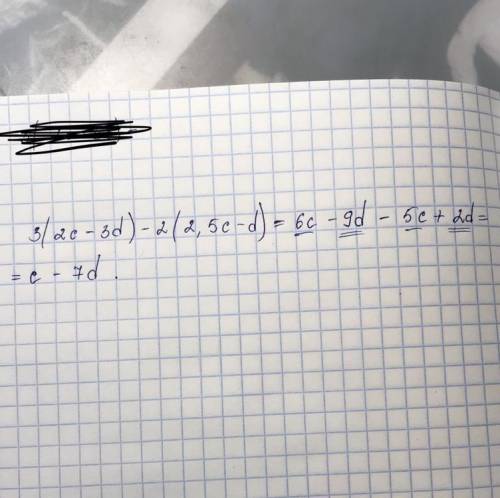 3(2c-3d)-2(2,5c-d)=6c-9d-5c+2d=
=c-7d.